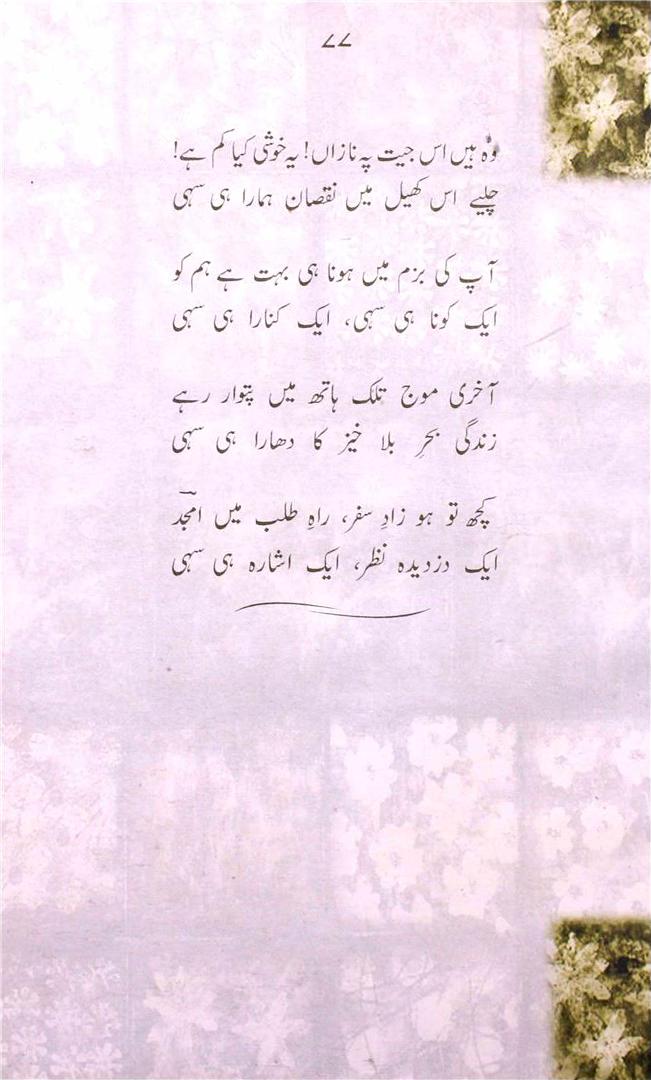 ۷۷
وہ ہیں اس جیت پہ نازاں! یہ خوشی کیا کم ہے!
چلیے اس کھیل میں نقصان ہمارا ہی سہی
آپ کی بزم میں ہونا ہی بہت ہے ہم کو
ایک کونا ہی سہی، ایک کنارا ہی سہی
آخری موج تلک ہاتھ میں پتوار رہے
زندگی بحرِ بلا خیز کا دھارا ہی سہی
کچھ تو ہو زادِ سفر، راہِ طلب میں امجدؔ
ایک دزدیدہ نظر، ایک اشارہ ہی سہی